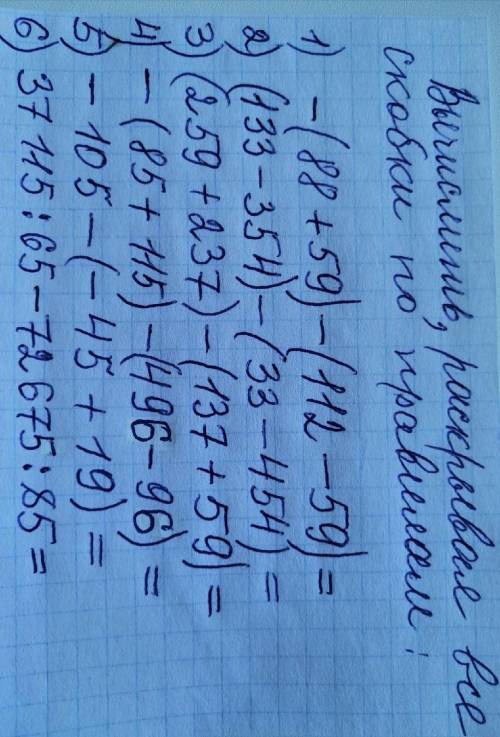 Вычислить, раскрывая все
скобки по правилам:
1) -(88+59)-(112-59)=
2) (133-354)-(33-454)=
3) (259+237)-(137+59)=
4) -(85+115)-(496-96)=
5) -105-(-45+19)=
6) 37115:65-72675:85=